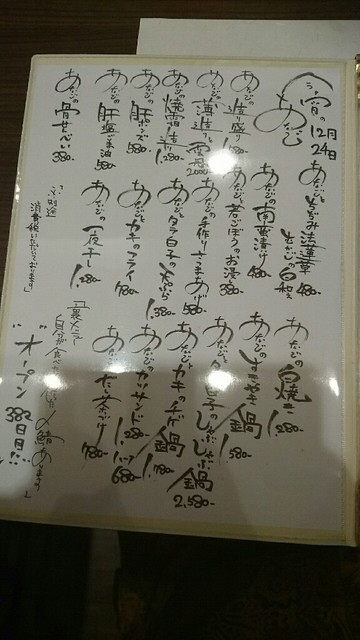 今宵の
あなご
12月
24日
あなごの造り盛り
あなごの薄造り
2,000
あなごの焼霜造り
1,280-
あなごの肝ポンズ 580-
あなごの肝塩ごま油 500-
あなごの骨せんべい 380-
あなごとちぢみ法蓮草
白和え 480-
あなごの南蛮漬け 480-
あなごと若ごぼうのお浸し 380-
あなごの手作りさつまあげ 580-
あなごとタラ白子の天ぷら 1,380-
あなごとカキのフライ 980-
あなごの一夜干し 1,280-
あなごの白焼き 1,280-
あなごのすきやき鍋 1,580-
あなごとタラ白子のしゃぶしゃぶ鍋 2,580-
あなごとカキのチゲ鍋 1,780-
あなごのカツサンド 1,280-
ハーフ 680-
あなごのだし茶づけ 780-
「別途
消費税いただいております」
「裏メニュー
〆鯖あります」
"オープン
382日目!!"